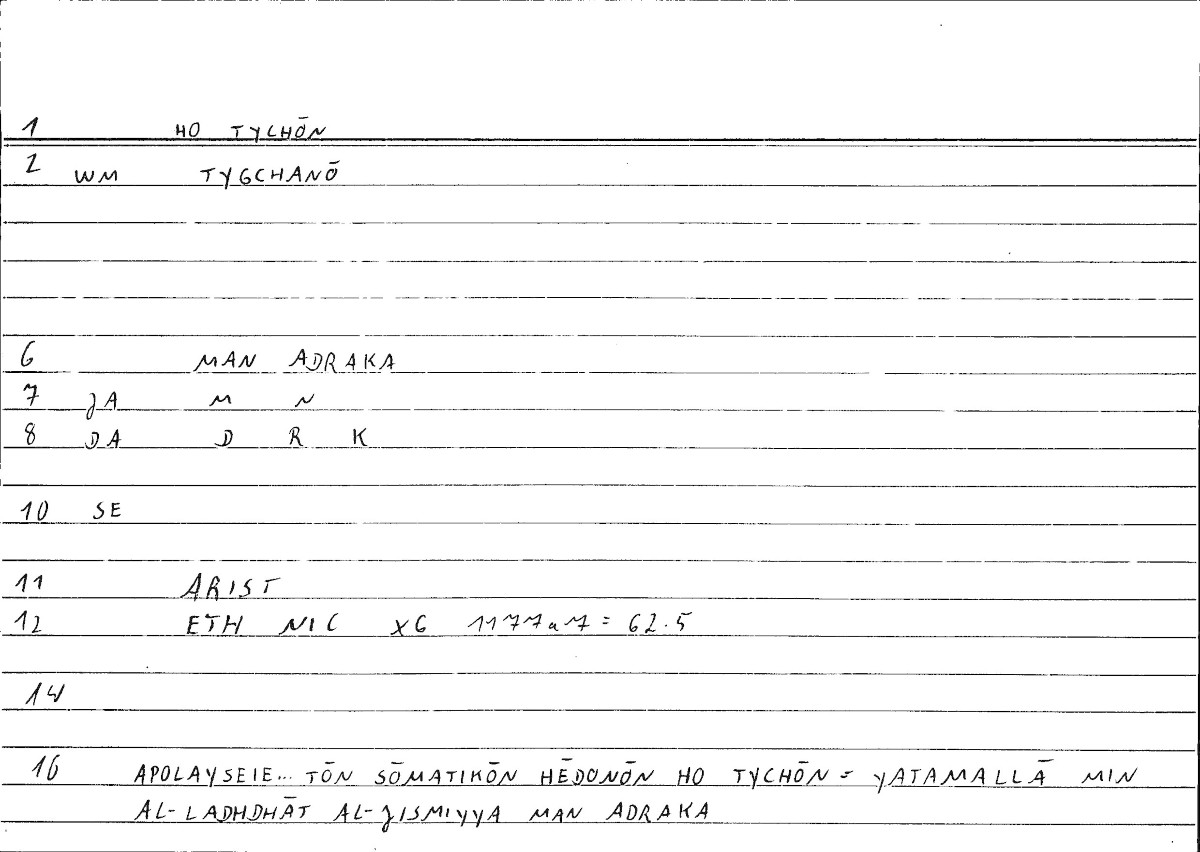 1 HO TYCHŌN
2 WM TYGCHANŌ
6 MAN ADRAKA
7 JA M N
8 DA D R K
10 SE
11 ARIST
12 ETH NIC X6 1177a7 = 62.5
14
16 APOLAYSEIE... TŌN SŌMATIKŌN HĒDONŌN HO TYCHŌN = YATAMALLĀ MIN
AL-LADHDHĀT AL-JISMIYYA MAN ADRAKA